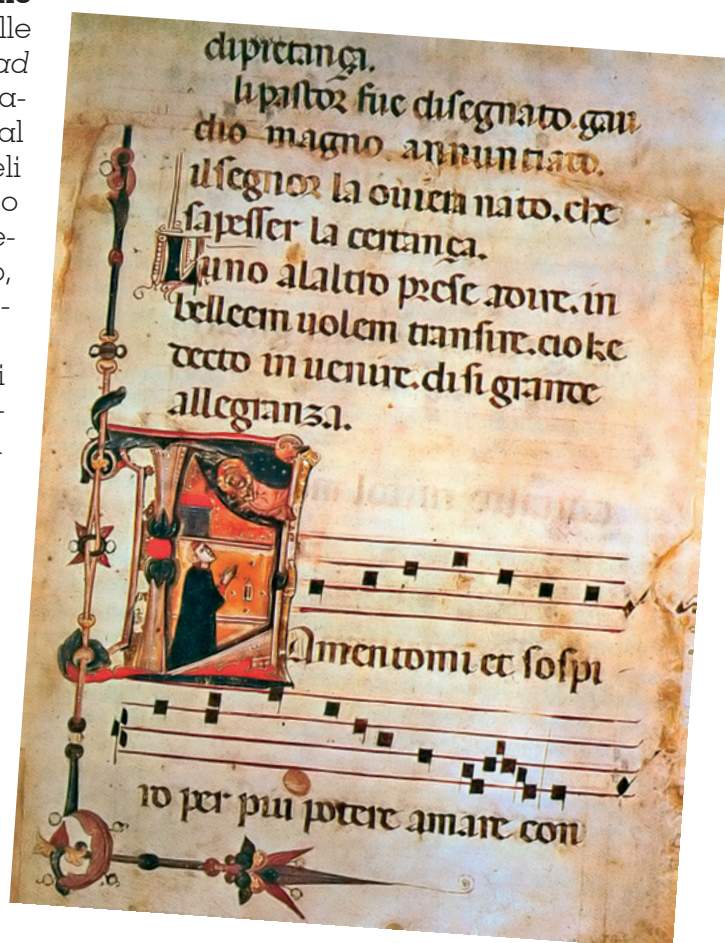 lle
ad
a-
al
eli
o
e-
o,
-
i
-
di pietança.
li pastor fue disegnato. gau
dio magno annuntiato.
il segnor la ouien nato. che
sapesser la certança.
Luno alaltro prese adire. in
belleem uolem transire. cio ke
decto in uenire. di si grande
allegranza.
Amentomi et sospi
ro per piu potere amare con